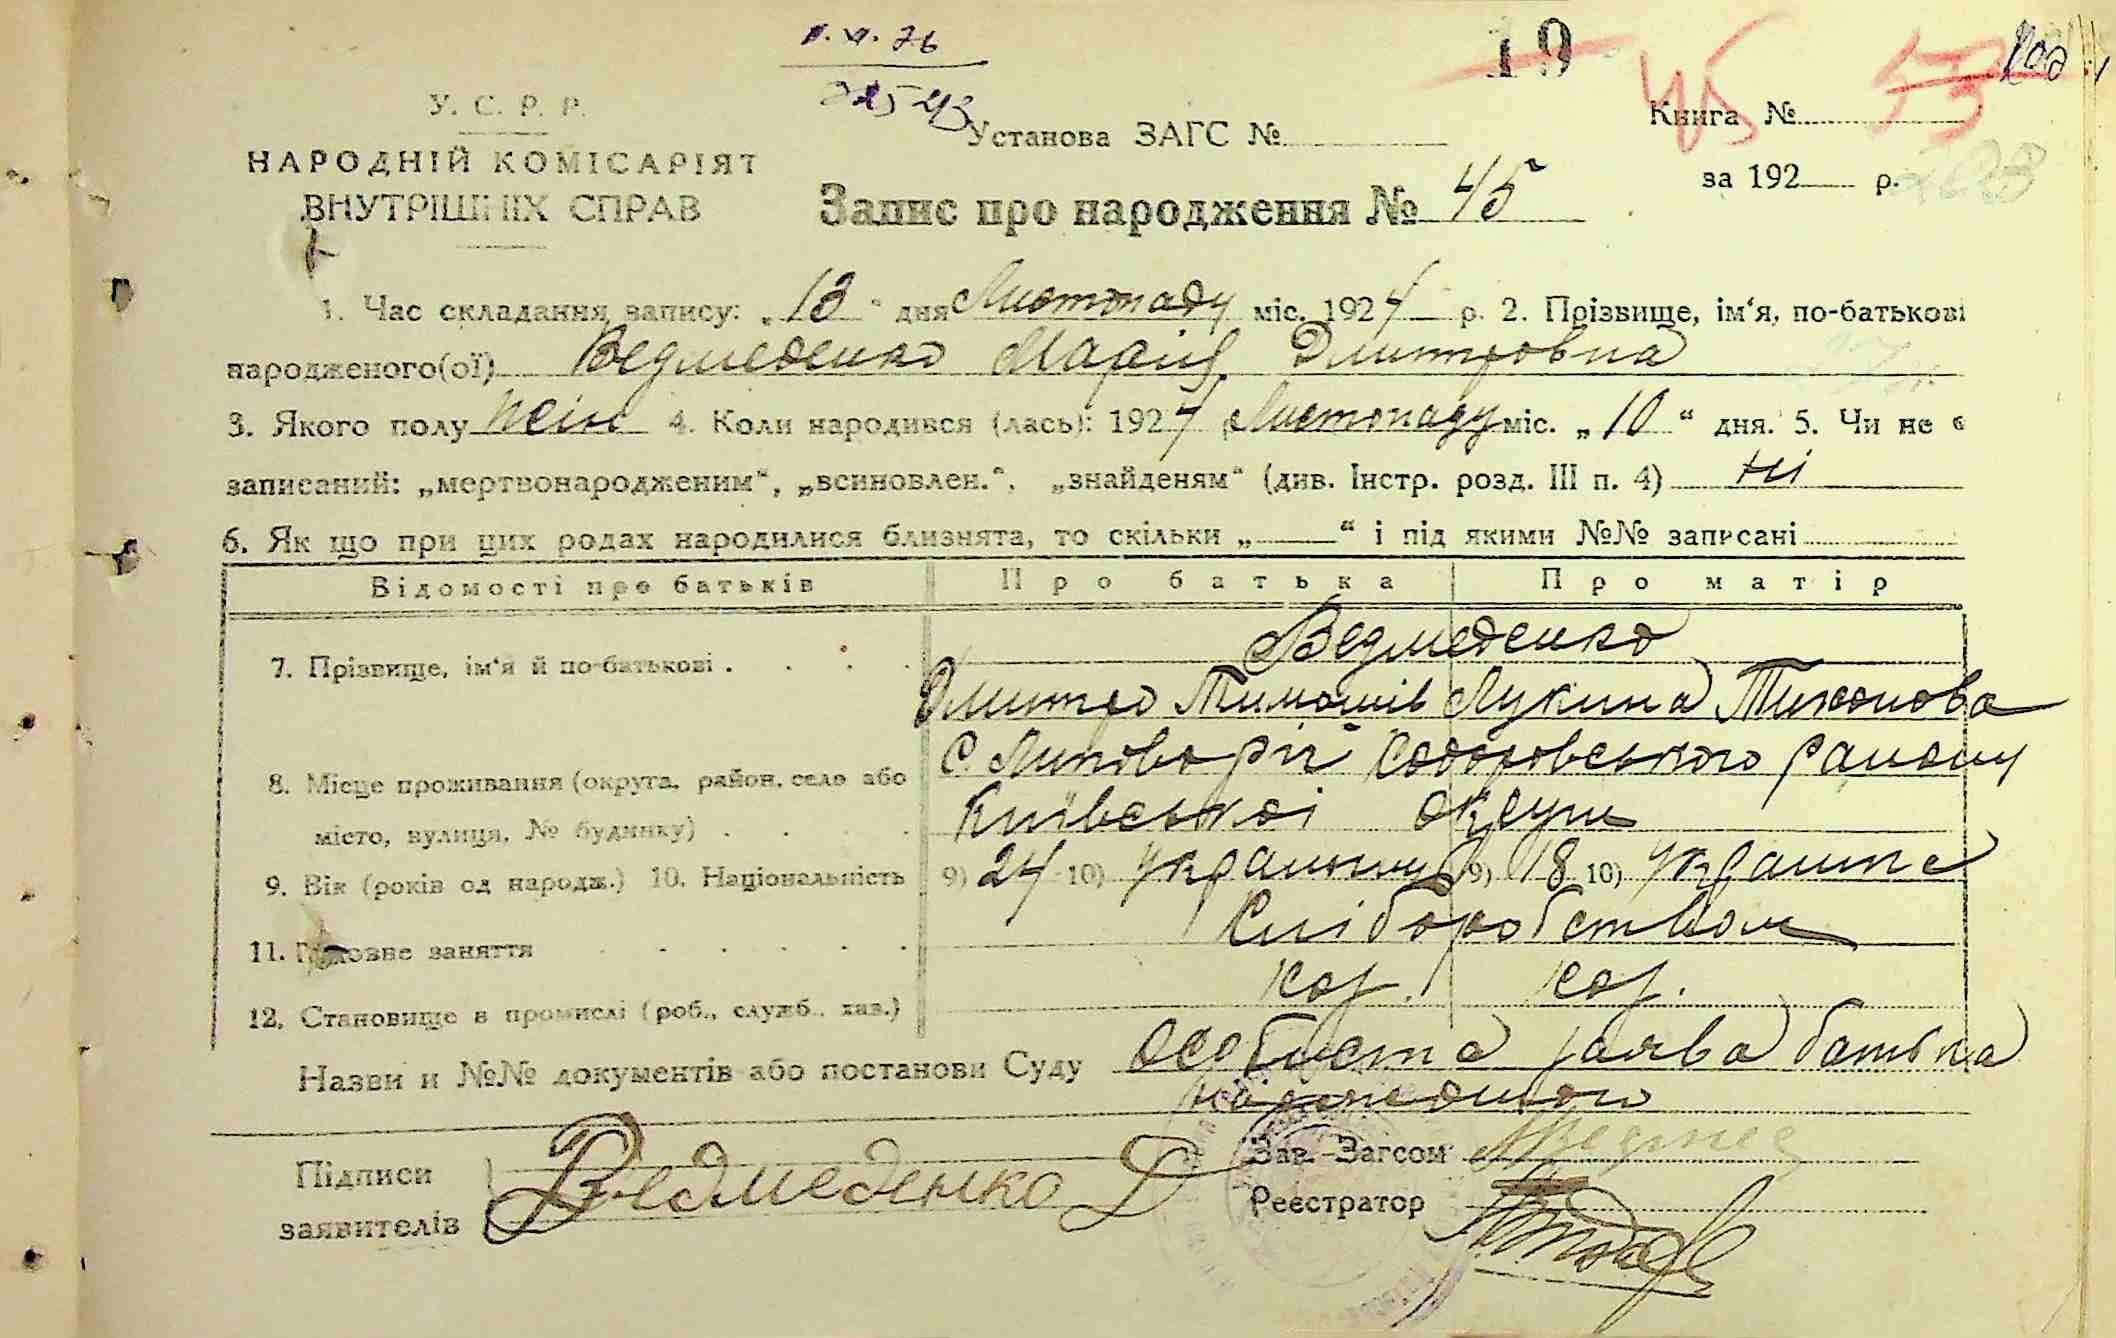 II. VI. 76
19
45
53
У. С. Р. Р.
НАРОДНІЙ КОМІСАРІЯТ
ВНУТРІШНІХ СПРАВ
Установа ЗАГС №
Книга №
за 192 р.
Запис про народження № 45
1. Час складання запису: „13" дня Листопаду міс. 1924 р. 2. Прізвище, ім'я, по-батькові
народженого(ої) Ведмеденко Марія Дмитровна
3. Якого полу жін 4. Коли народився (лась): 1924 Листопаду міс. „10" дня. 5. Чи не є
записаний: „мертвонародженим", „всиновлен.", „знайденям" (див. Інстр. розд. III п. 4) ні
6. Як що при цих родах народилися близнята, то скільки „ " і під якими №№ записані
Відомості про батьків Про батька Про матір
7. Прізвище, ім'я й по-батькові Ведмеденко
Дмитро Тимошів Лукина Тихонова
8. Місце проживання (округа, район, село або С. Липовий ріг району
місто, вулиця, № будинку) Київської округи
9. Вік (років од народж.) 10. Національність 9) 24 10) 9) 18 10)
11. Головне заняття Хліборобством
12. Становище в промислі (роб., служб., хаз.) хаз. хаз.
Назви и №№ документів або постанови Суду особиста заява батька
народженного
Підписи
заявителів Ведмеденко Д
Зав. Загсом
Реєстратор